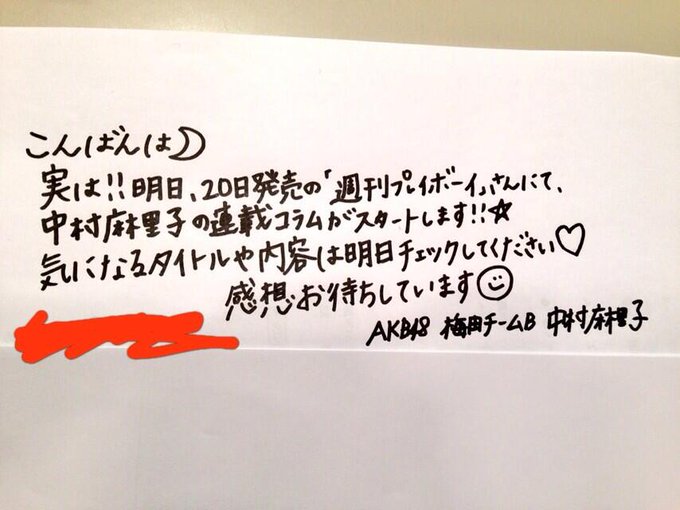 こんばんは☽
実は!!明日、20日発売の「週刊プレイボーイ」さんにて、
中村麻里子の連載コラムがスタートします!!☆
気になるタイトルや内容は明日チェックしてください♡
感想お待ちしています☺
AKB48 梅田チームB 中村麻里子